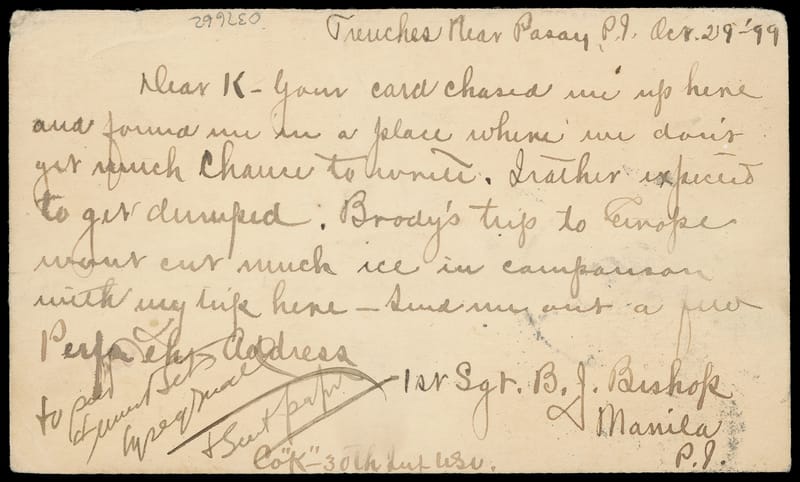 299230
Trenches Near Pasay, P.I. Oct. 29-'99
Dear K- Your card chased me up here
and found me in a place where we don't
get much chance to write. I rather expected
to get dumped. Brody's trip to Europe
wont cut much ice in comparison
with my trip here - Send me out a few
Perf Address
to pay
& Sent paper
1st Sgt. B. J. Bishop
Manila
P.I.
Co "K"- 30th Inf USV.